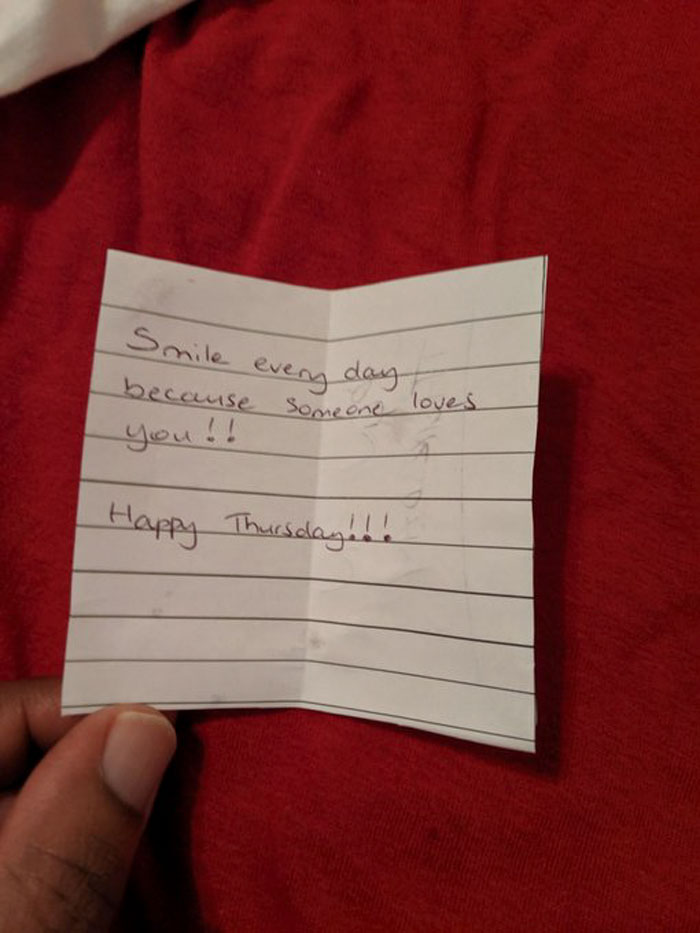 Smile every day
because someone loves
you!!
Happy Thursday!!!